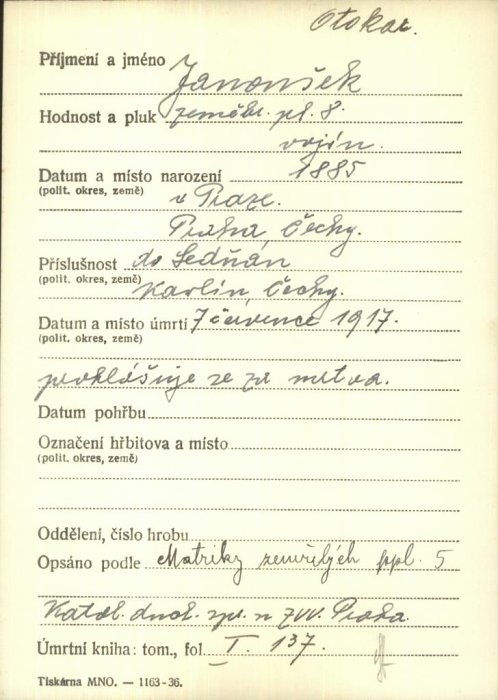 Otokar.
Příjmení a jméno Janoušek
Hodnost a pluk zeměbr. pl. 8.
vojín.
Datum a místo narození 1885
(polit. okres, země) v Praze.
Praha, Čechy.
Příslušnost do Sedňán
(polit. okres, země) Karlín, Čechy.
Datum a místo úmrtí 7 července 1917.
(polit. okres, země)
prohlašuje se za mrtva.
Datum pohřbu
Označení hřbitova a místo
(polit. okres, země)
Oddělení, číslo hrobu
Opsáno podle Matriky zemřelých ppl. 5
Katol. duch. spr. n ZVV. Praha.
Úmrtní kniha: tom., fol. I. 137.
Tiskárna MNO. — 1163-36.